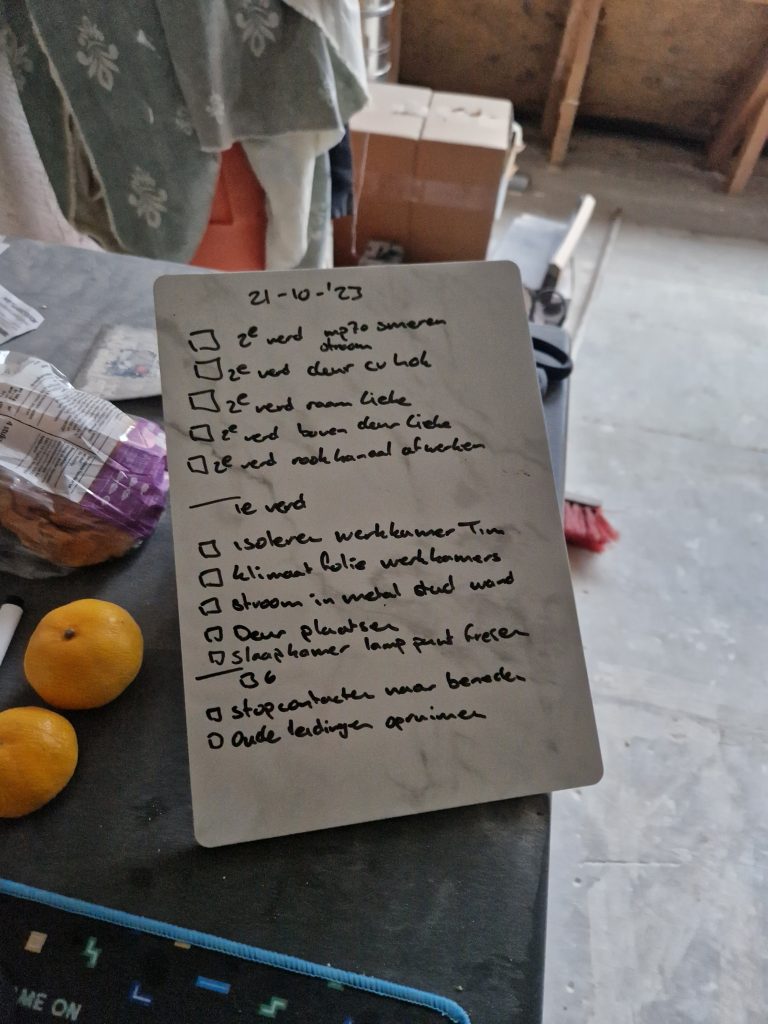 21-10-'23
2e verd mp70 smeren
stroom
2e verd deur cv hok
2e verd raam Lieke
2e verd boven deur Lieke
2e verd rookkanaal afwerken
1e verd
isoleren werkkamer Tim
klimaat folie werkkamers
stroom in metal stud wand
Deur plaatsen
slaapkamer lamp punt fresen
BG
stopcontacten naar beneden
Oude leidingen opruimen
ME ON